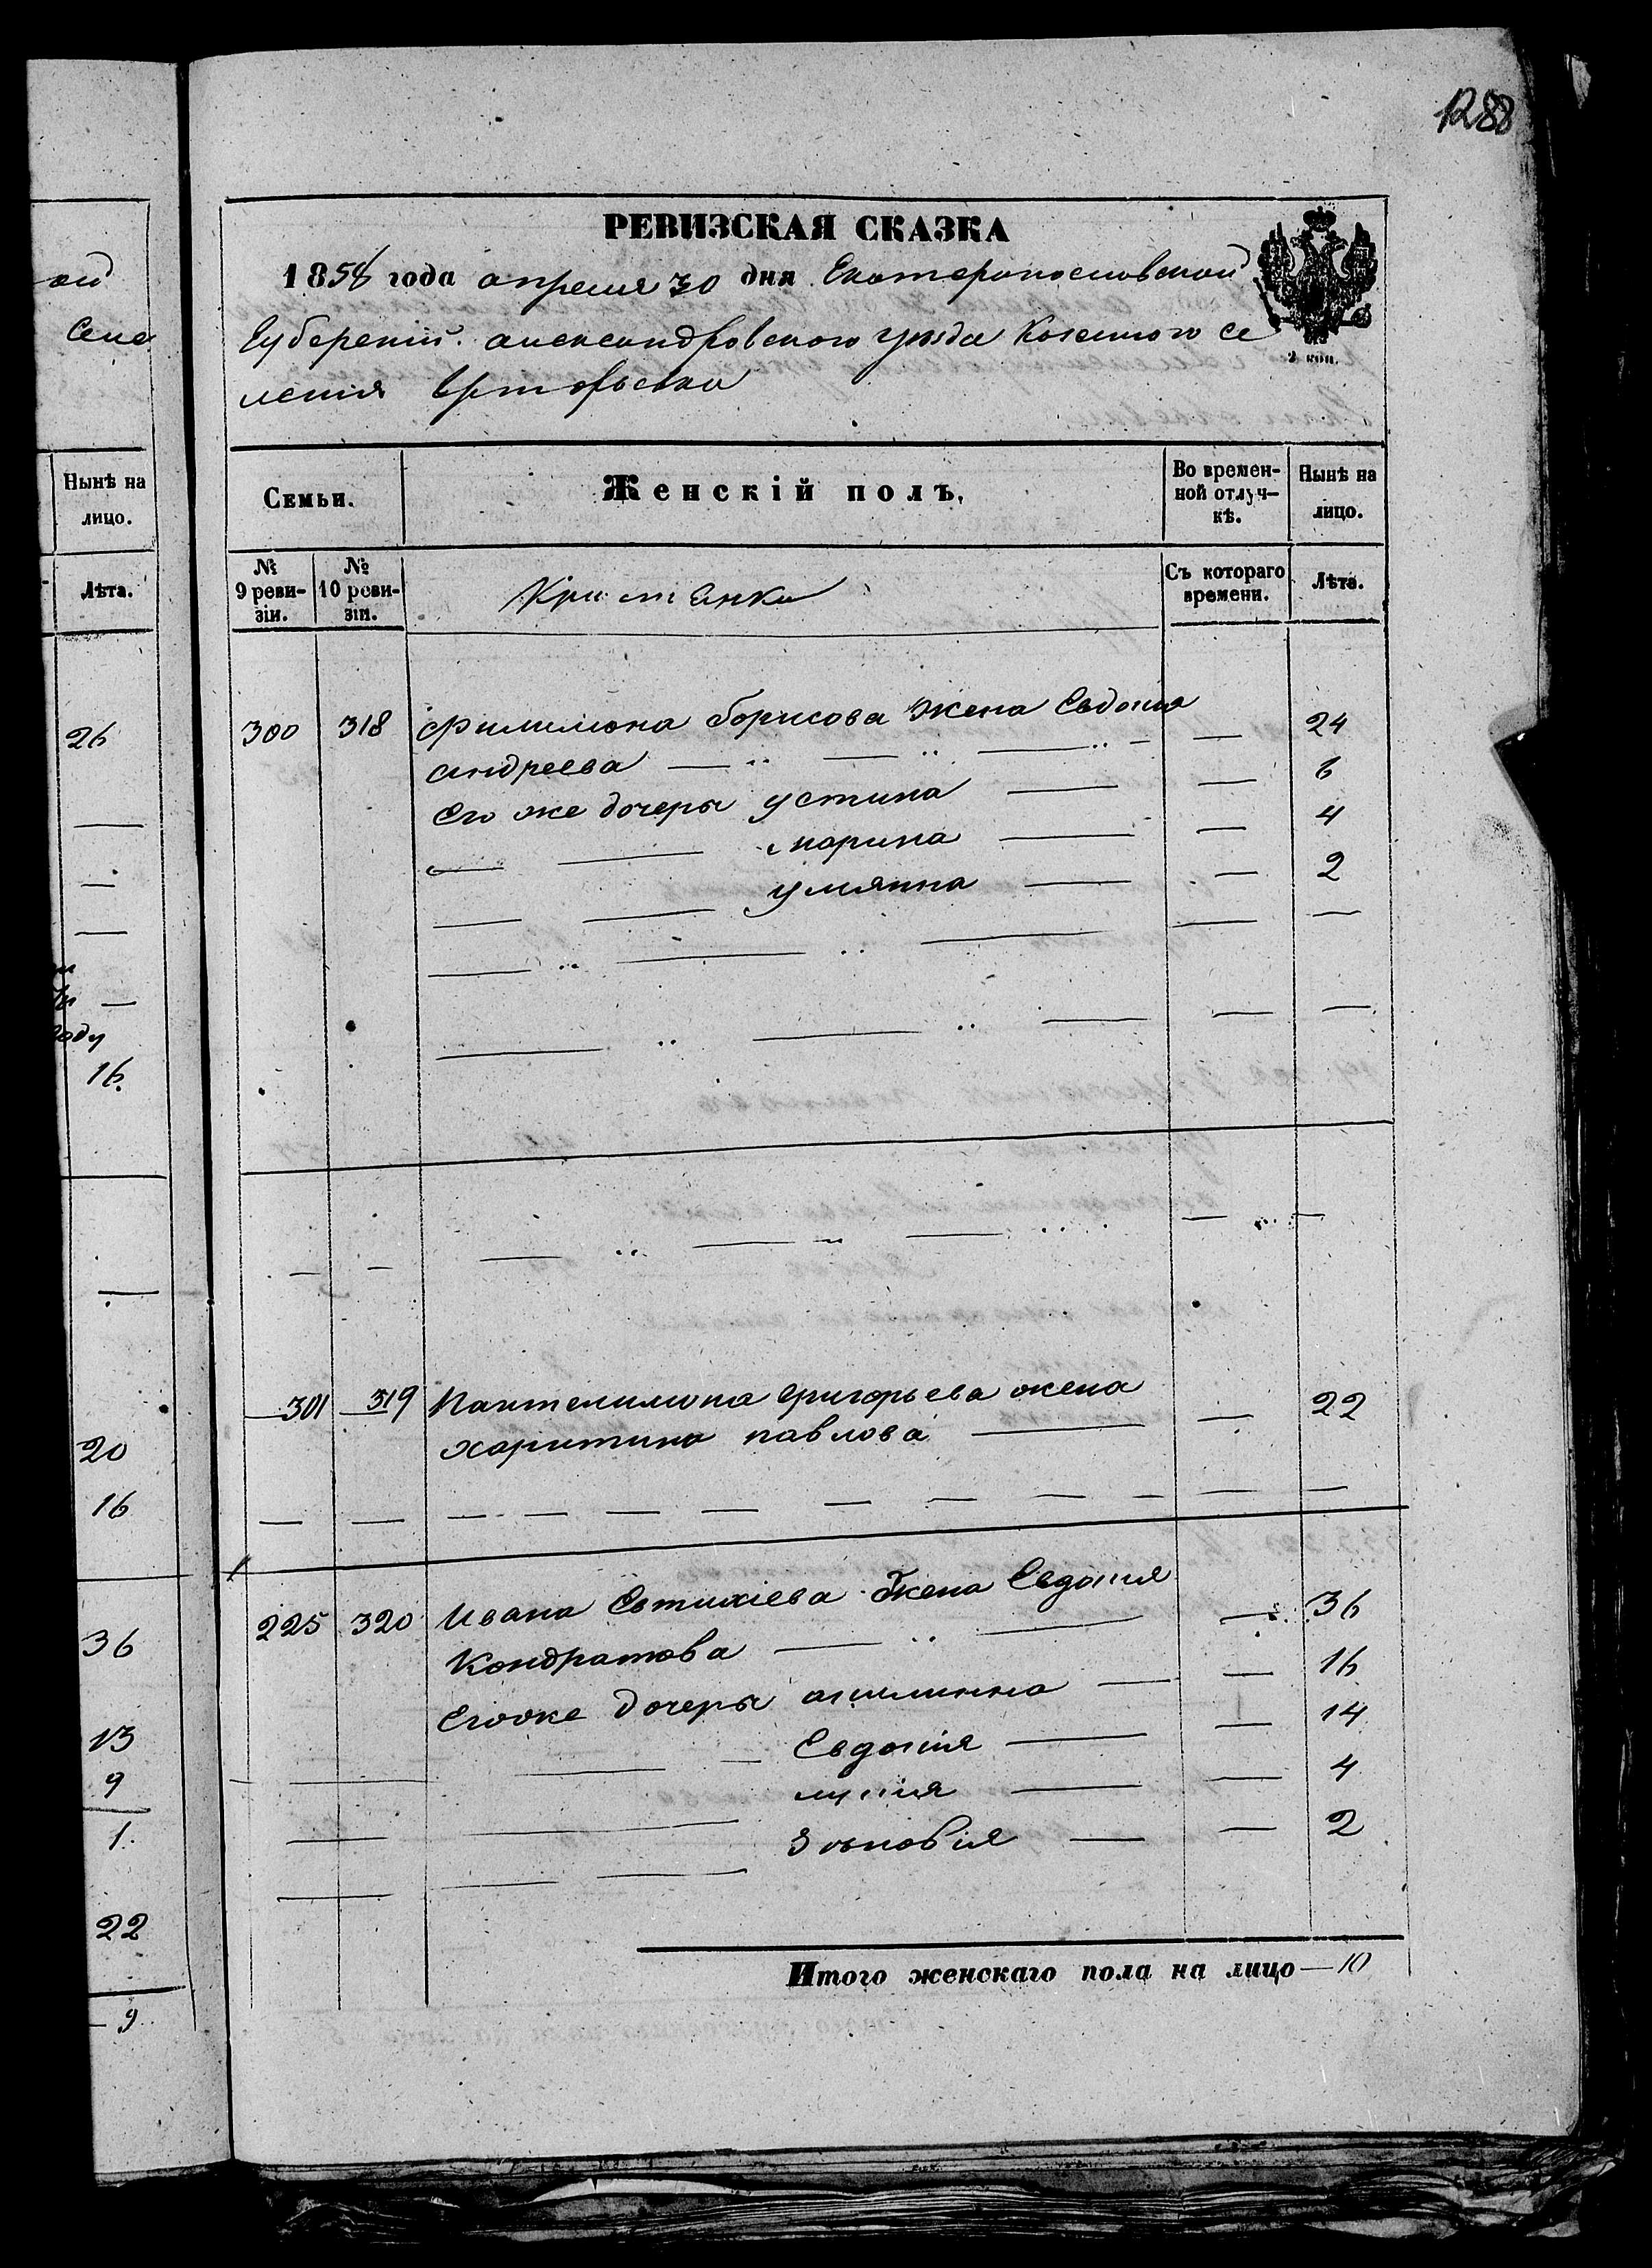 1288
ой
Селе
Нынѣ на
лицо.
Лѣта.
26
оду
16.
20
16
36
13
9
1.
22
9
РЕВИЗСКАЯ СКАЗКА
1858 года апреля 30 дня Екатеринославской
Губерніи александровского уезда Казенного се
ления
2 коп.
Семьи.
Женскій полъ,
Во времен-
ной отлуч-
кѣ.
Нынѣ на
лицо.
№
9 реви-
зіи.
№
10 реви-
зіи.
Съ котораго
времени.
Лѣта.
300 318 Филимона борисова жена Евдокия 24
андреева
Его же дочеры устина 6
марина 4
улянна 2
301 319 Пантелимона григорьева жена 22
харитина павлова
225 320 Ивана Евтихіева Жена Евдокия 36
Кондратова
Егоже дочеры акилинна 16
Евдокия 14
4
Зѣновія 2
Итого женскаго пола на лицо — 10